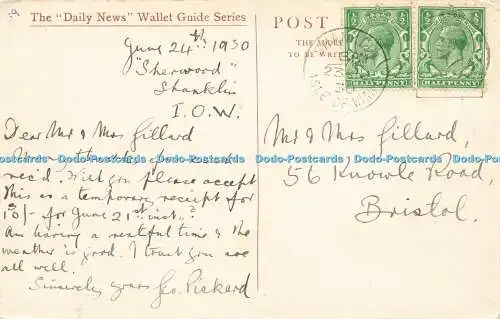 59
The "Daily News" Wallet Guide Series
POST
THE ADDRE
TO BE WRIT
HALFPENNY HALFPENNY
ISLE OF WIGHT
June 24th 1930
"Sherwood"
Shanklin
I.O.W.
Dear Mr & Mrs Gillard
rec'd. Will you please accept
this as a temporary receipt for
10/- for June 21st inst.
Am having a restful time & the
weather is good. I trust you are
all well.
Sincerely yours Geo. Pickard
Mr & Mrs Gillard,
56 Knowle Road,
Bristol.
Dodo-Postcards Dodo-Postcards Dodo-Postcards Dodo-Postcards Dodo-Postcards